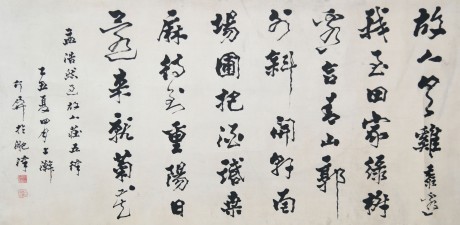 故人具雞黍邀
我至田家綠樹
村邊合青山郭
外斜開軒面
場圃把酒話桑
麻待到重陽日
還來就菊花
孟浩然過故人莊五律
丑夏四月